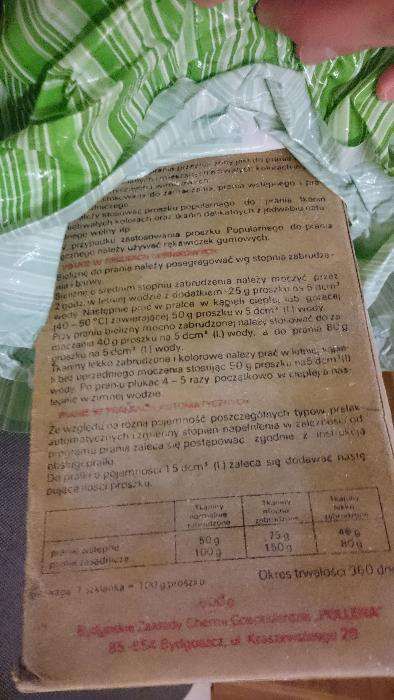 należy stosować proszku popularnego do prania tkanin
kolorach oraz tkanin delikatnych z jedwabiu natu-
wełny itp.
przypadku zastosowania proszku Popularnego do prania
ręcznego należy używać rękawiczek gumowych.
Bieliznę do prania należy posegregować wg stopnia zabrudze-
nia i barwy.
Bieliznę o średnim stopniu zabrudzenia należy moczyć przez
w letniej wodzie z dodatkiem 25 g proszku na 5 dcm³
wody. Następnie prać w praniu w kąpieli ciepłej lub gorącej
(40 – 60 °C) zawierającej 50 g proszku w 5 dcm³ (l.) wody.
Przy praniu bielizny mocno zabrudzonej należy stosować do za-
moczania 40 g proszku na 5 dcm³ (l.) wody, a do prania 80 g
proszku na 5 dcm³ (l.) wody.
Tkaniny lekko zabrudzone i kolorowe należy prać w letniej kąpie-
li bez uprzedniego moczenia stosując 50 g proszku na 5 dcm³ (l)
wody. Po praniu płukać 4 – 5 razy początkowo w ciepłej a nas-
tępnie w zimnej wodzie.
PRANIE W PRALKACH AUTOMATYCZNYCH
Ze względu na różną pojemność poszczególnych typów pralek
automatycznych i zmienny stopień napełnienia w zależności od
programu prania zaleca się postępować zgodnie z instrukcją
obsługi pralki.
Do pralki o pojemności 15 dcm³ (l.) zaleca się dodawać nastę-
pujące ilości proszku:
Tkaniny normalnie zabrudzone Tkaniny mocno zabrudzone Tkaniny lekko zabrudzone
pranie wstępne 50 g 75 g 40 g
pranie zasadnicze 100 g 150 g 80 g
1 szklanka = 100 g proszku
Okres trwałości 360 dni
600 g
Bydgoskie Zakłady Chemii Gospodarczej „POLLENA"
85-954 Bydgoszcz, ul. Kraszewskiego 20